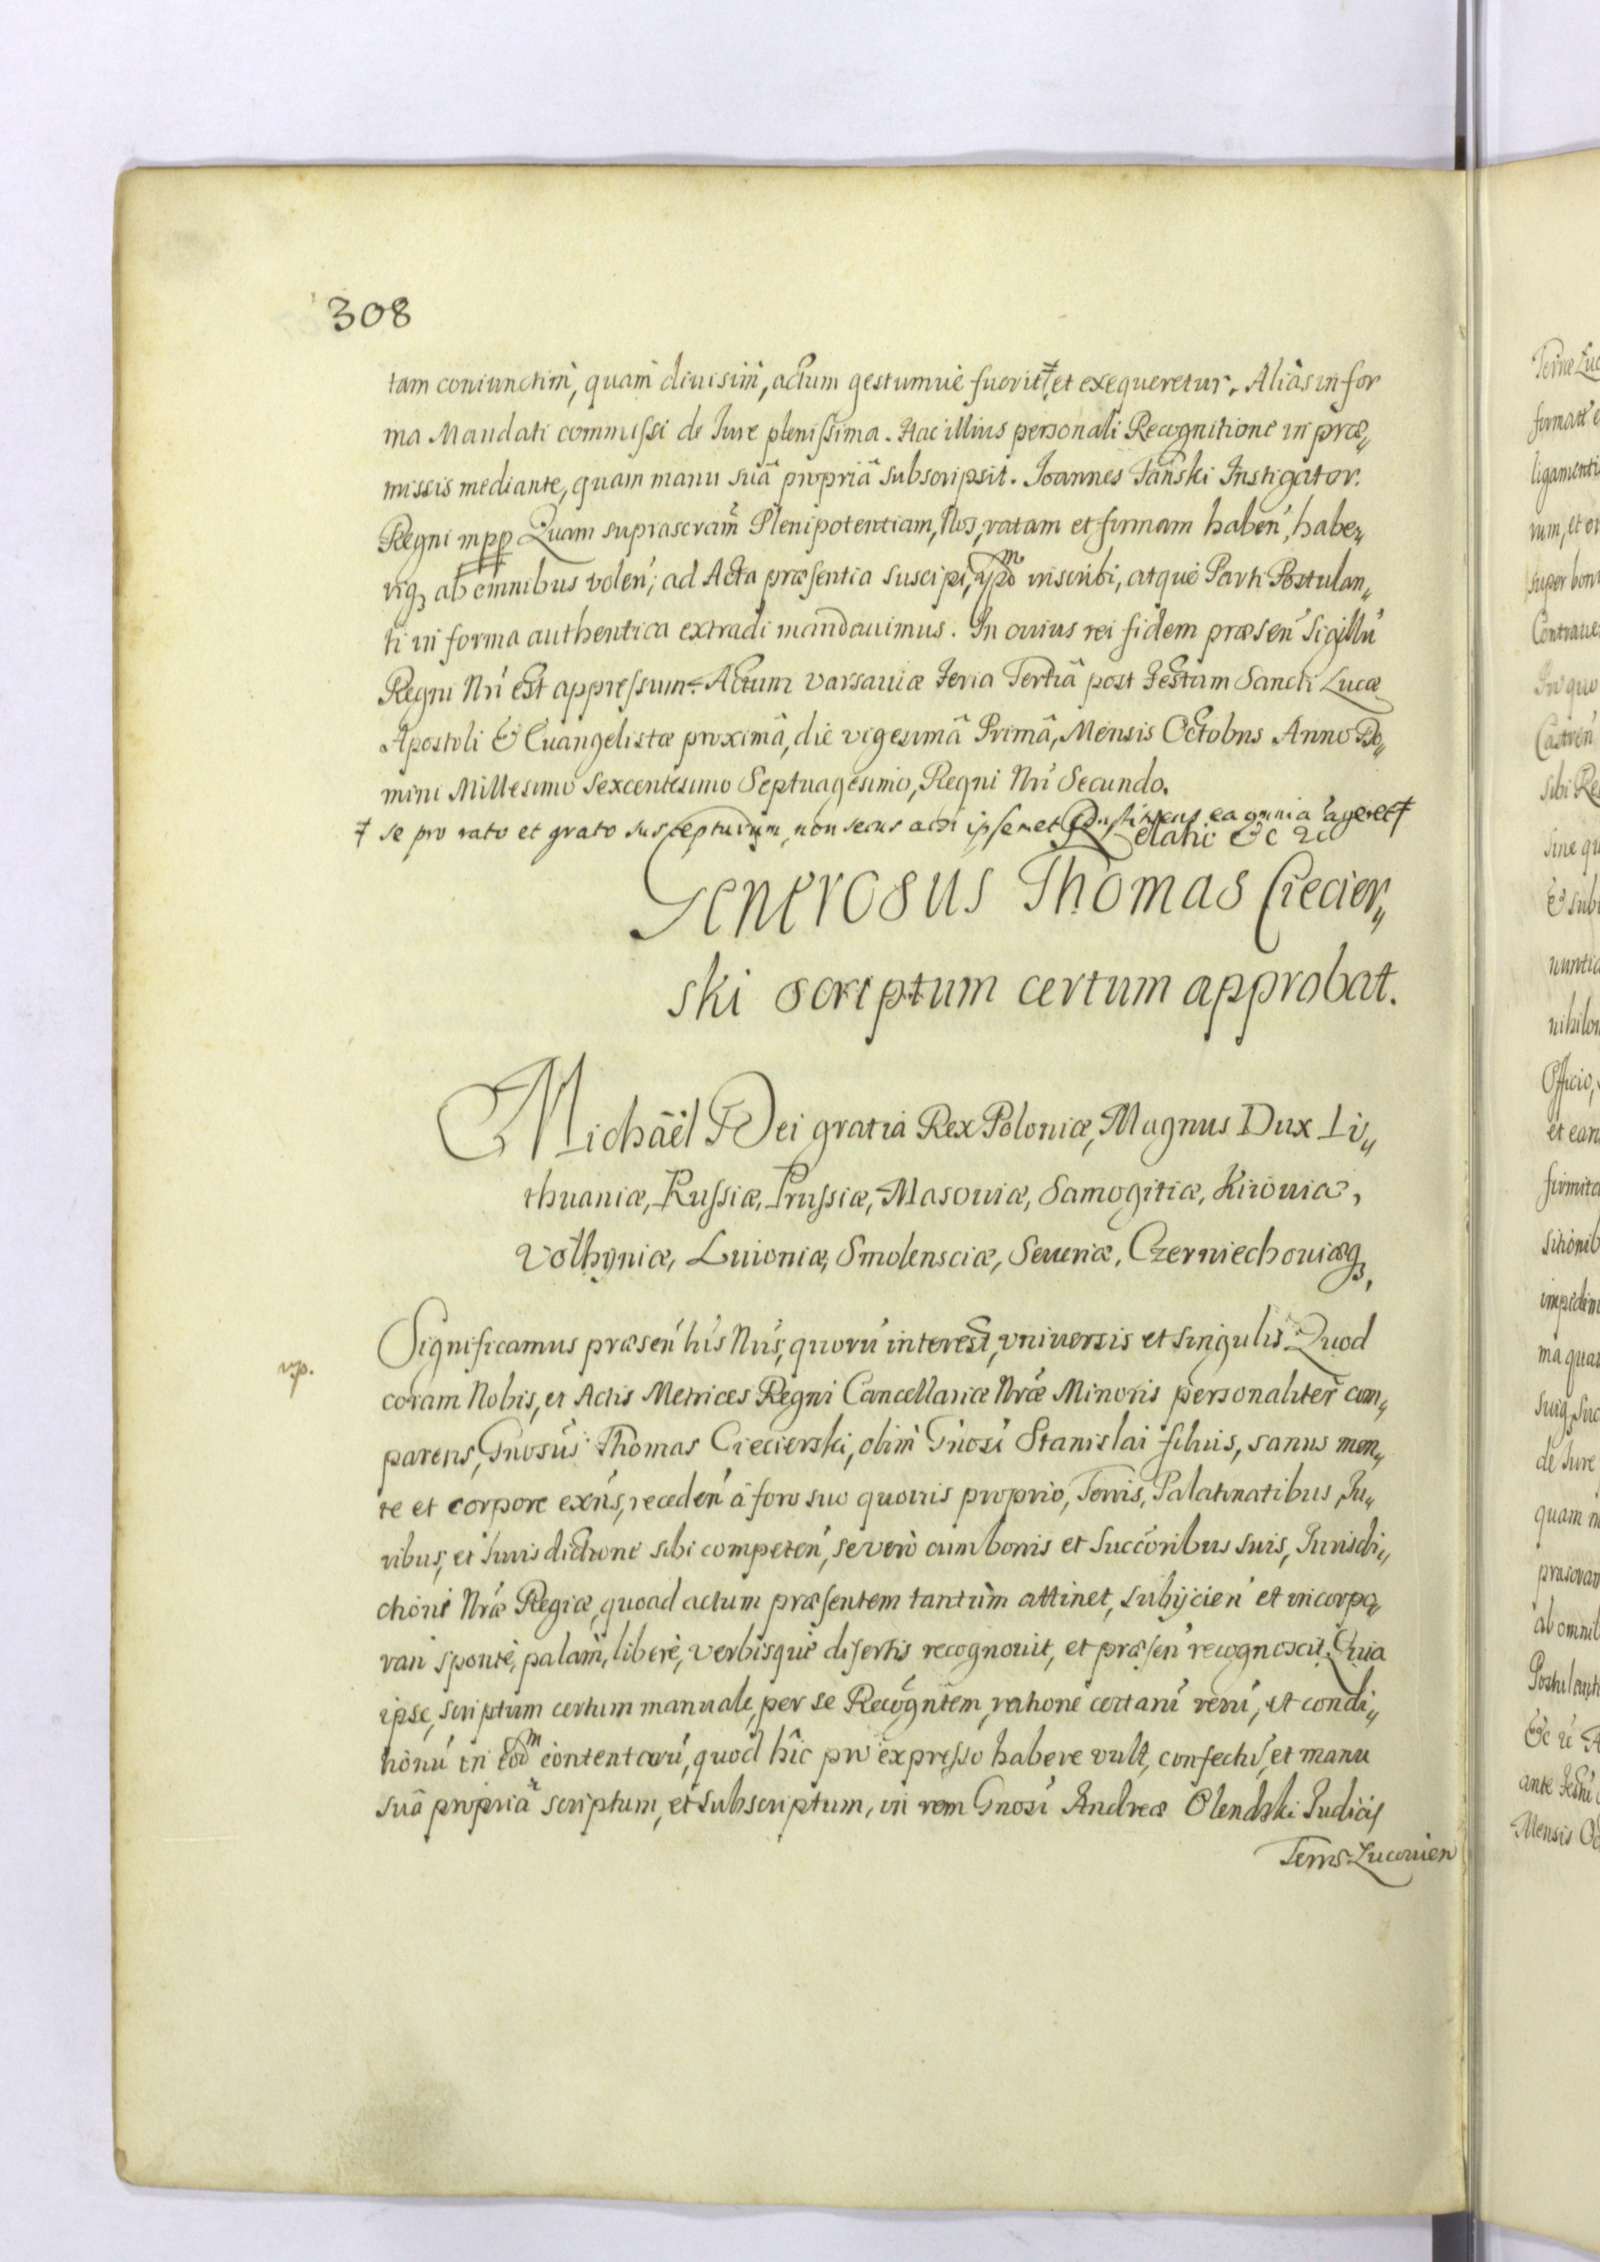 308
tam coniunctim, quam diuisim, actum gestumue fuerit ‡, et exequeretur. Aliàs in for
ma Mandati commissi de Iure plenissima. Hac illius personali Recognitione in præ„
missis mediante, quam manu suâ propriâ subscripsit. Joannes Tański Instigator.
Regni mpp Quam suprascram Plenipotentiam, Nos, ratam et firmam haben, habe„
riq; ab omnibus volen, ad Acta præsentia suscipi, inscribi, atque Parti Postulan„
ti in forma authentica extradi mandauimus. In cuius rei fidem præsen Sigillu
Regni Nri est appressum. Actum Varsauiæ Feria Tertiâ post Festum Sancti Lucæ
Apostoli & Euangelistæ proximâ, die vigesimâ Primâ, Mensis Octobris Anno Do„
mini Millesimo Sexcentesimo Septuagesimo, Regni Nri Secundo.
‡ se pro rato et grato suscepturum, non secus acsi ipsemet ea omnia ageret ‡
Relatio &c
Generosus Thomas Ciecier„
ski scriptum certum approbat.
Michaël Dei gratia Rex Poloniæ, Magnus Dux Li„
thuaniæ, Russiæ, Prussiæ, Masouiæ, Samogitiæ, Kiiouiæ,
Volhyniæ, Liuoniæ, Smolensciæ, Seueriæ, Czerniechouiæq;,
Significamus præsen his Nris, quoru interest, vniuersis et singulis. Quod
coram Nobis, et Actis Metrices Regni Cancellariæ Nræ Minoris personaliter com„
parens, Gnosus Thomas Ciecierski, olim Gnosi Stanislai filius, sanus men„
te et corpore exns, receden â foro suo quouis proprio, Terris, Palatinatibus, Iu„
ribus, et Iurisdictione sibi competen, se vero cum bonis et Succoribus suis, Iurisdi„
ctioni Nræ Regiæ, quoad actum præsentem tantum attinet, subijcien et incorpo„
ran sponte, palam, libere, verbisque disertis recognouit, et præsen recognoscit. Quia
ipse, scriptum certum manuale, per se Recogntem, ratione certaru reru, et condi„
tionu in eodm contentaru, quod hîc pro expresso habere vult, confectu, et manu
suâ propriâ scriptum, et subscriptum, in rem Gnosi Andreæ Olendzki Iudicis
Terris Lucouien